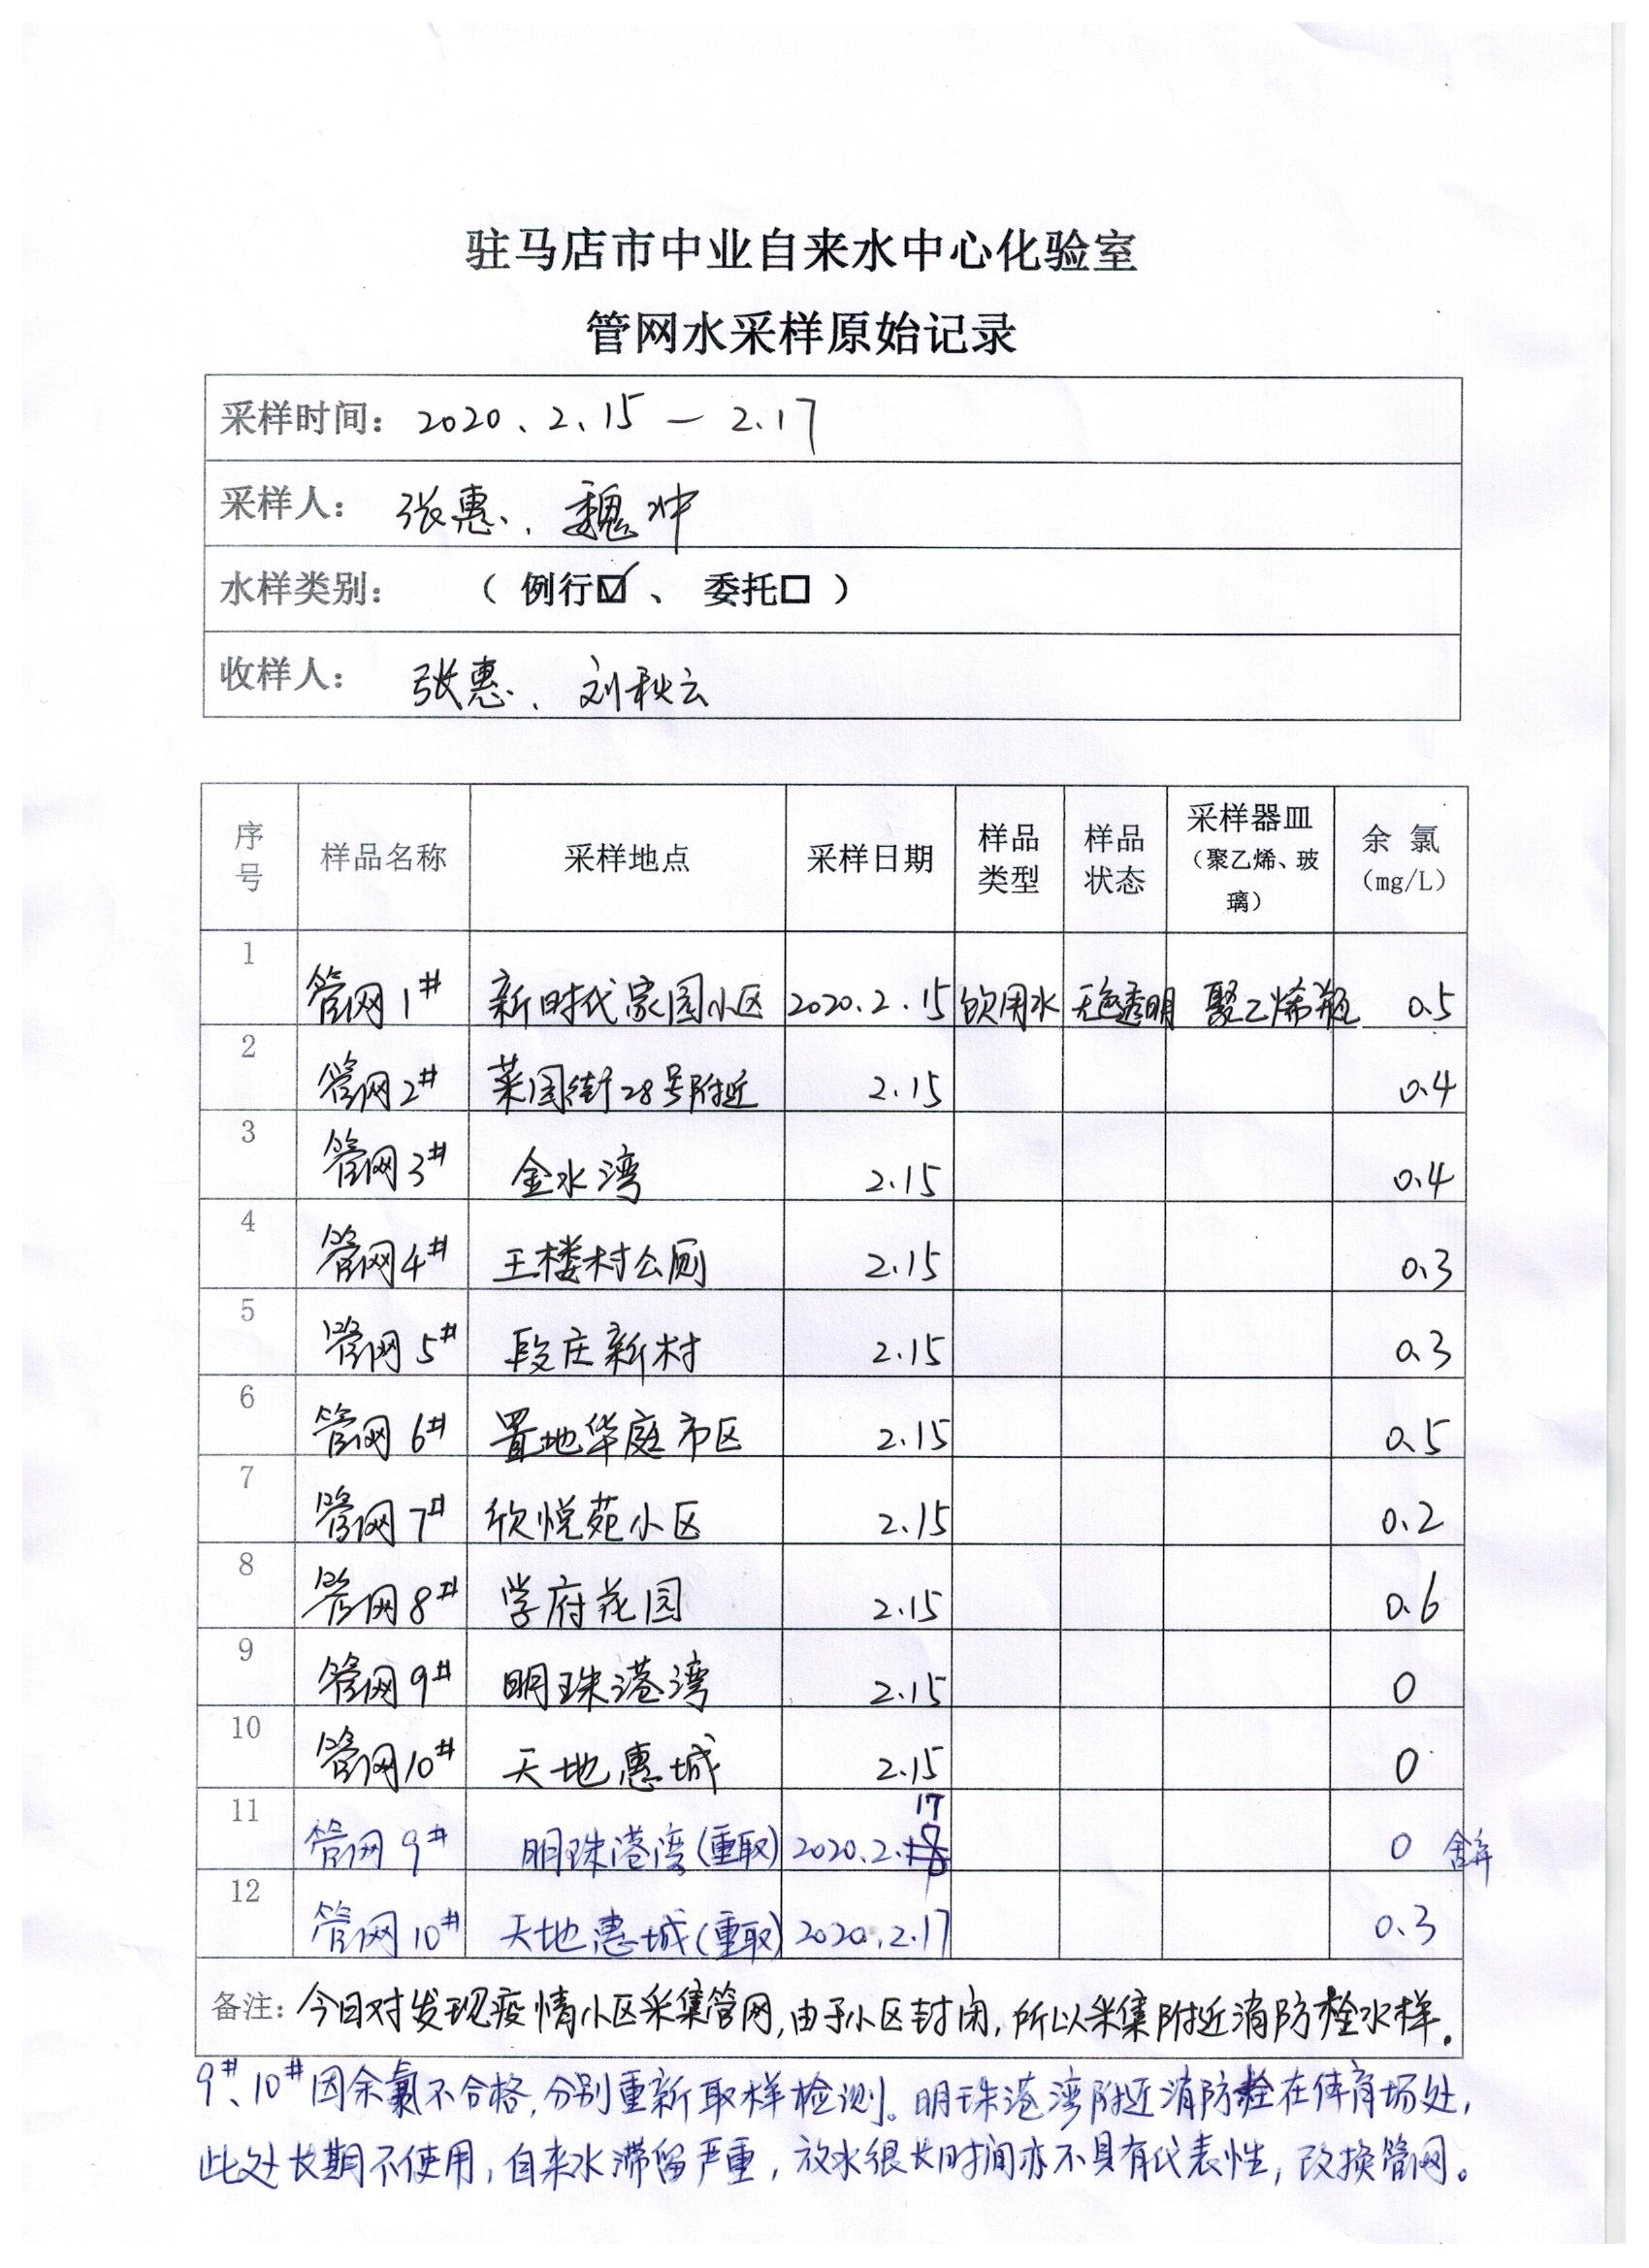 驻马店市中业自来水中心化验室
管网水采样原始记录
采样时间： 2020、2、15 — 2.17
采样人： 张惠、魏冲
水样类别： （ 例行☑ 、 委托□ ）
收样人： 张惠、刘秋云
序号 样品名称 采样地点 采样日期 样品类型 样品状态 采样器皿（聚乙烯、玻璃） 余 氯（mg/L）
1 管网1# 新时代家园小区 2020.2.15 饮用水 无色透明 聚乙烯瓶 0.5
2 管网2# 菜园街28号附近 2.15 0.4
3 管网3# 金水湾 2.15 0.4
4 管网4# 王楼村公厕 2.15 0.3
5 管网5# 段庄新村 2.15 0.3
6 管网6# 置地华庭市区 2.15 0.5
7 管网7# 欣悦苑小区 2.15 0.2
8 管网8# 学府花园 2.15 0.6
9 管网9# 明珠港湾 2.15 0
10 管网10# 天地惠城 2.15 0
11 管网9# 明珠港湾(重取) 2020.2.17 0 舍弃
12 管网10# 天地惠城(重取) 2020.2.17 0.3
备注：今日对发现疫情小区采集管网,由于小区封闭,所以采集附近消防栓水样。
9#、10#因余氯不合格,分别重新取样检测。明珠港湾附近消防栓在体育场处,
此处长期不使用,自来水滞留严重,放水很长时间亦不具有代表性,改换管网。